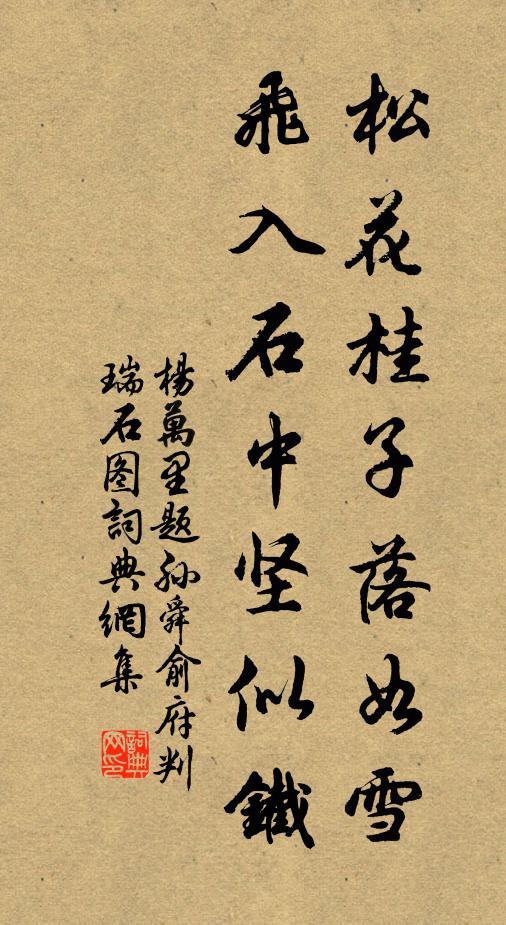 松花桂子落如雪
飛入石中坚似鐵
楊萬里題孙舜俞府判
瑞石图詞典網集
詞典网印